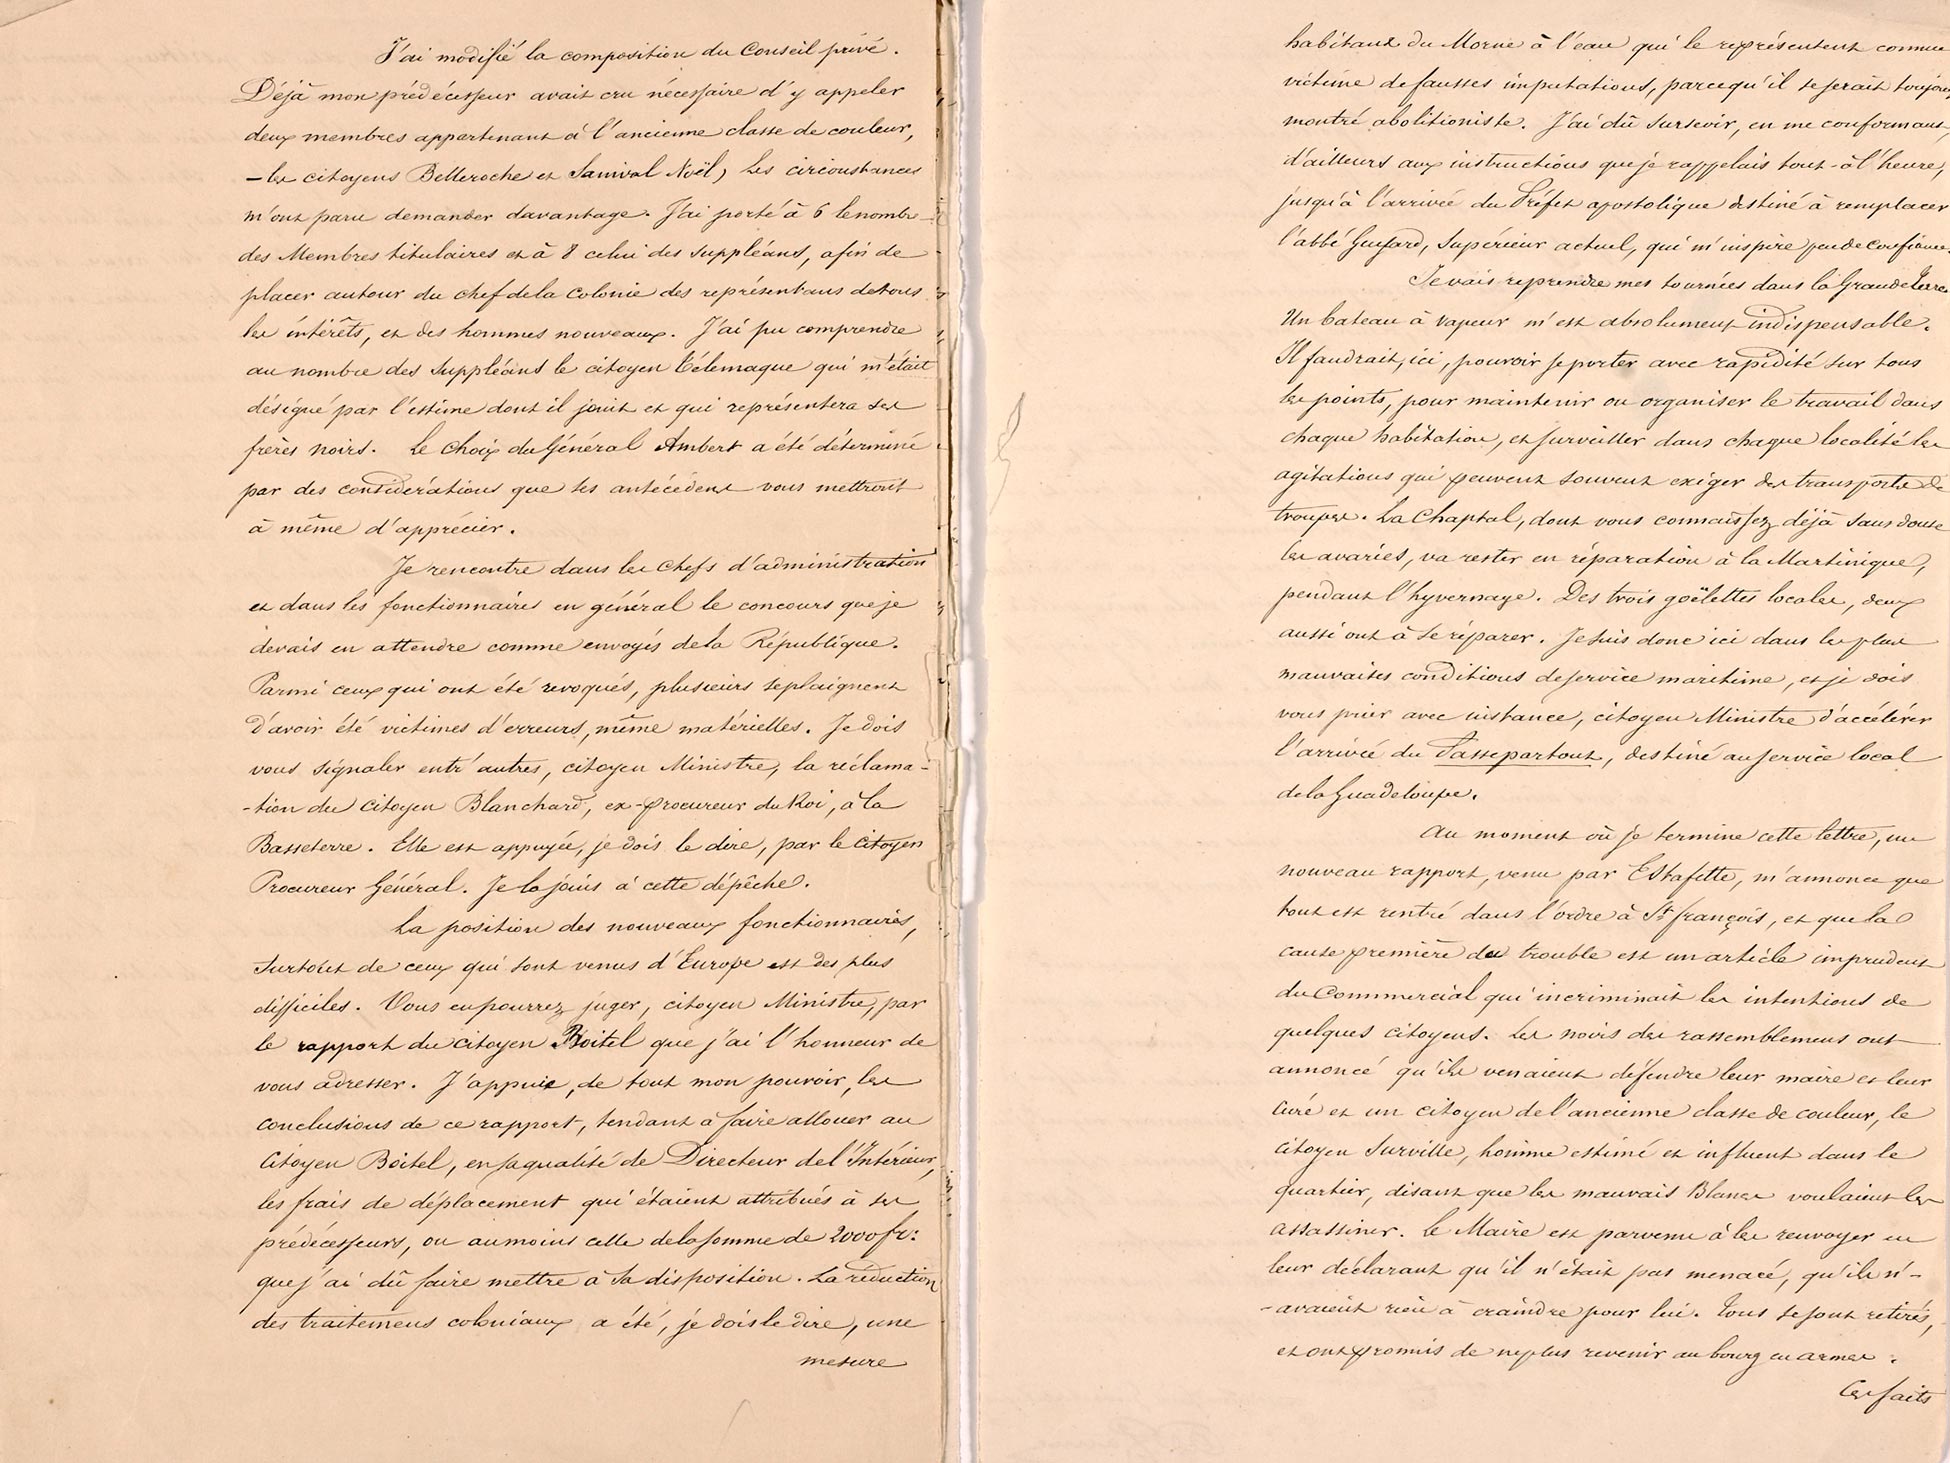 J'ai modifié la composition du Conseil privé.
Déjà mon prédécesseur avait cru nécessaire d'y appeler
deux membres appartenant à l'ancienne classe de couleur,
- les citoyens Belleroche et Sanival Noël, les circonstances
m'ont paru demander davantage. J'ai porté à 6 le nombre
des Membres titulaires et à 8 celui des suppléans, afin de
placer autour du chef de la Colonie des représentans de tous
les intérêts, et des hommes nouveaux. J'ai pu comprendre
au nombre des Suppléans le citoyen Télémaque qui m'était
désigné par l'estime dont il jouit et qui représentera ses
frères noirs. Le choix du Général Ambert a été déterminé
par des considérations que ses antécédens vous mettront
à même d'apprécier.
Je rencontre dans les chefs d'administration
et dans les fonctionnaires en général le concours que je
devais en attendre comme envoyés de la République.
Parmi ceux qui ont été révoqués, plusieurs se plaignent
d'avoir été victimes d'erreurs, même matérielles. Je dois
vous signaler entr'autres, citoyen Ministre, la réclama-
-tion du citoyen Blanchard, ex-procureur du Roi, à la
Basseterre. Elle est appuyée, je dois le dire, par le Citoyen
Procureur Général. Je la joins à cette dépêche.
La position des nouveaux fonctionnaires,
surtout de ceux qui sont venus d'Europe est des plus
difficiles. Vous en pourrez juger, citoyen Ministre, par
le rapport du citoyen Boitel que j'ai l'honneur de
vous adresser. J'appuie, de tout mon pouvoir, les
conclusions de ce rapport, tendant à faire allouer au
Citoyen Boitel, en sa qualité de Directeur de l'Intérieur,
les frais de déplacement qui étaient attribués à ses
prédécesseurs, ou au moins celle de la somme de 2000 fr:
que j'ai dû faire mettre à sa disposition. La réduction
des traitemens coloniaux a été, je dois le dire, une
mesure
habitans du Morne à l'eau qui le représentent comme
victime de fausses imputations, parcequ'il se serait toujours
montré abolitioniste. J'ai dû surseoir, en me conformant,
d'ailleurs aux instructions que je rappelais tout-à l'heure,
jusqu'à l'arrivée du Préfet apostolique destiné à remplacer
l'abbé Guyard, Supérieur actuel, qui m'inspire peu de confiance.
Je vais reprendre mes tournées dans la Grande terre
Un bateau à vapeur m'est absolument indispensable.
Il faudrait, ici, pouvoir se porter avec rapidité sur tous
les points, pour maintenir ou organiser le travail dans
chaque habitation, et surveiller dans chaque localité les
agitations qui peuvent souvent exiger des transports de
troupes. La Chaptal, dont vous connaissez déjà sans doute
les avaries, va rester en réparation à la Martinique,
pendant l'hyvernage. Des trois goëlettes locales, deux
aussi ont à se réparer. Je suis donc ici dans les plus
mauvaises conditions de service maritime, et je dois
vous prier avec instance, citoyen Ministre d'accélérer
l'arrivée du Passepartout, destiné au service local
de la Guadeloupe.
Au moment où je termine cette lettre, un
nouveau rapport, venu par Estafette, m'annonce que
tout est rentré dans l'ordre à St. françois, et que la
cause première du trouble est un article imprudent
du Commercial qui incriminait les intentions de
quelques citoyens. Les noirs des rassemblemens ont
annoncé qu'ils venaient défendre leur maire et leur
Curé et un citoyen de l'ancienne classe de couleur, le
Citoyen Surville, homme estimé et influent dans le
quartier, disant que les mauvais Blancs voulaient les
assassiner. Le Maire est parvenu à les renvoyer en
leur déclarant qu'il n'était pas menacé, qu'ils n'-
-avaient rien à craindre pour lui. Tous se sont retirés,
et ont promis de ne plus revenir au bourg en armes.
Ces faits